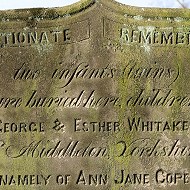 CTIONATE REMEMBE
two infants (twins)
are buried here, children
GEORGE & ESTHER WHITAKE
Middleton, Yorkshire
NAMELY OF ANN JANE COPE